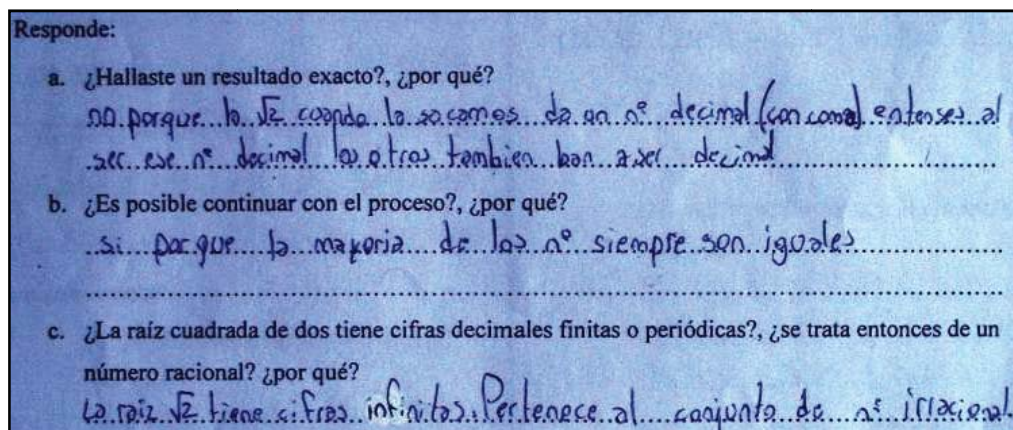 Responde:
a. ¿Hallaste un resultado exacto?, ¿por qué?
no porque la √2 cuando la sacamos da un nº decimal (con coma) entenses al
ser ese nº decimal los otros tambien ban a ser decimal
b. ¿Es posible continuar con el proceso?, ¿por qué?
si porque la mayoria de los nº siempre son iguales
c. ¿La raíz cuadrada de dos tiene cifras decimales finitas o periódicas?, ¿se trata entonces de un
número racional? ¿por qué?
La raiz √2 tiene cifras infinitas. Pertenece al conjunto de nº irracional.